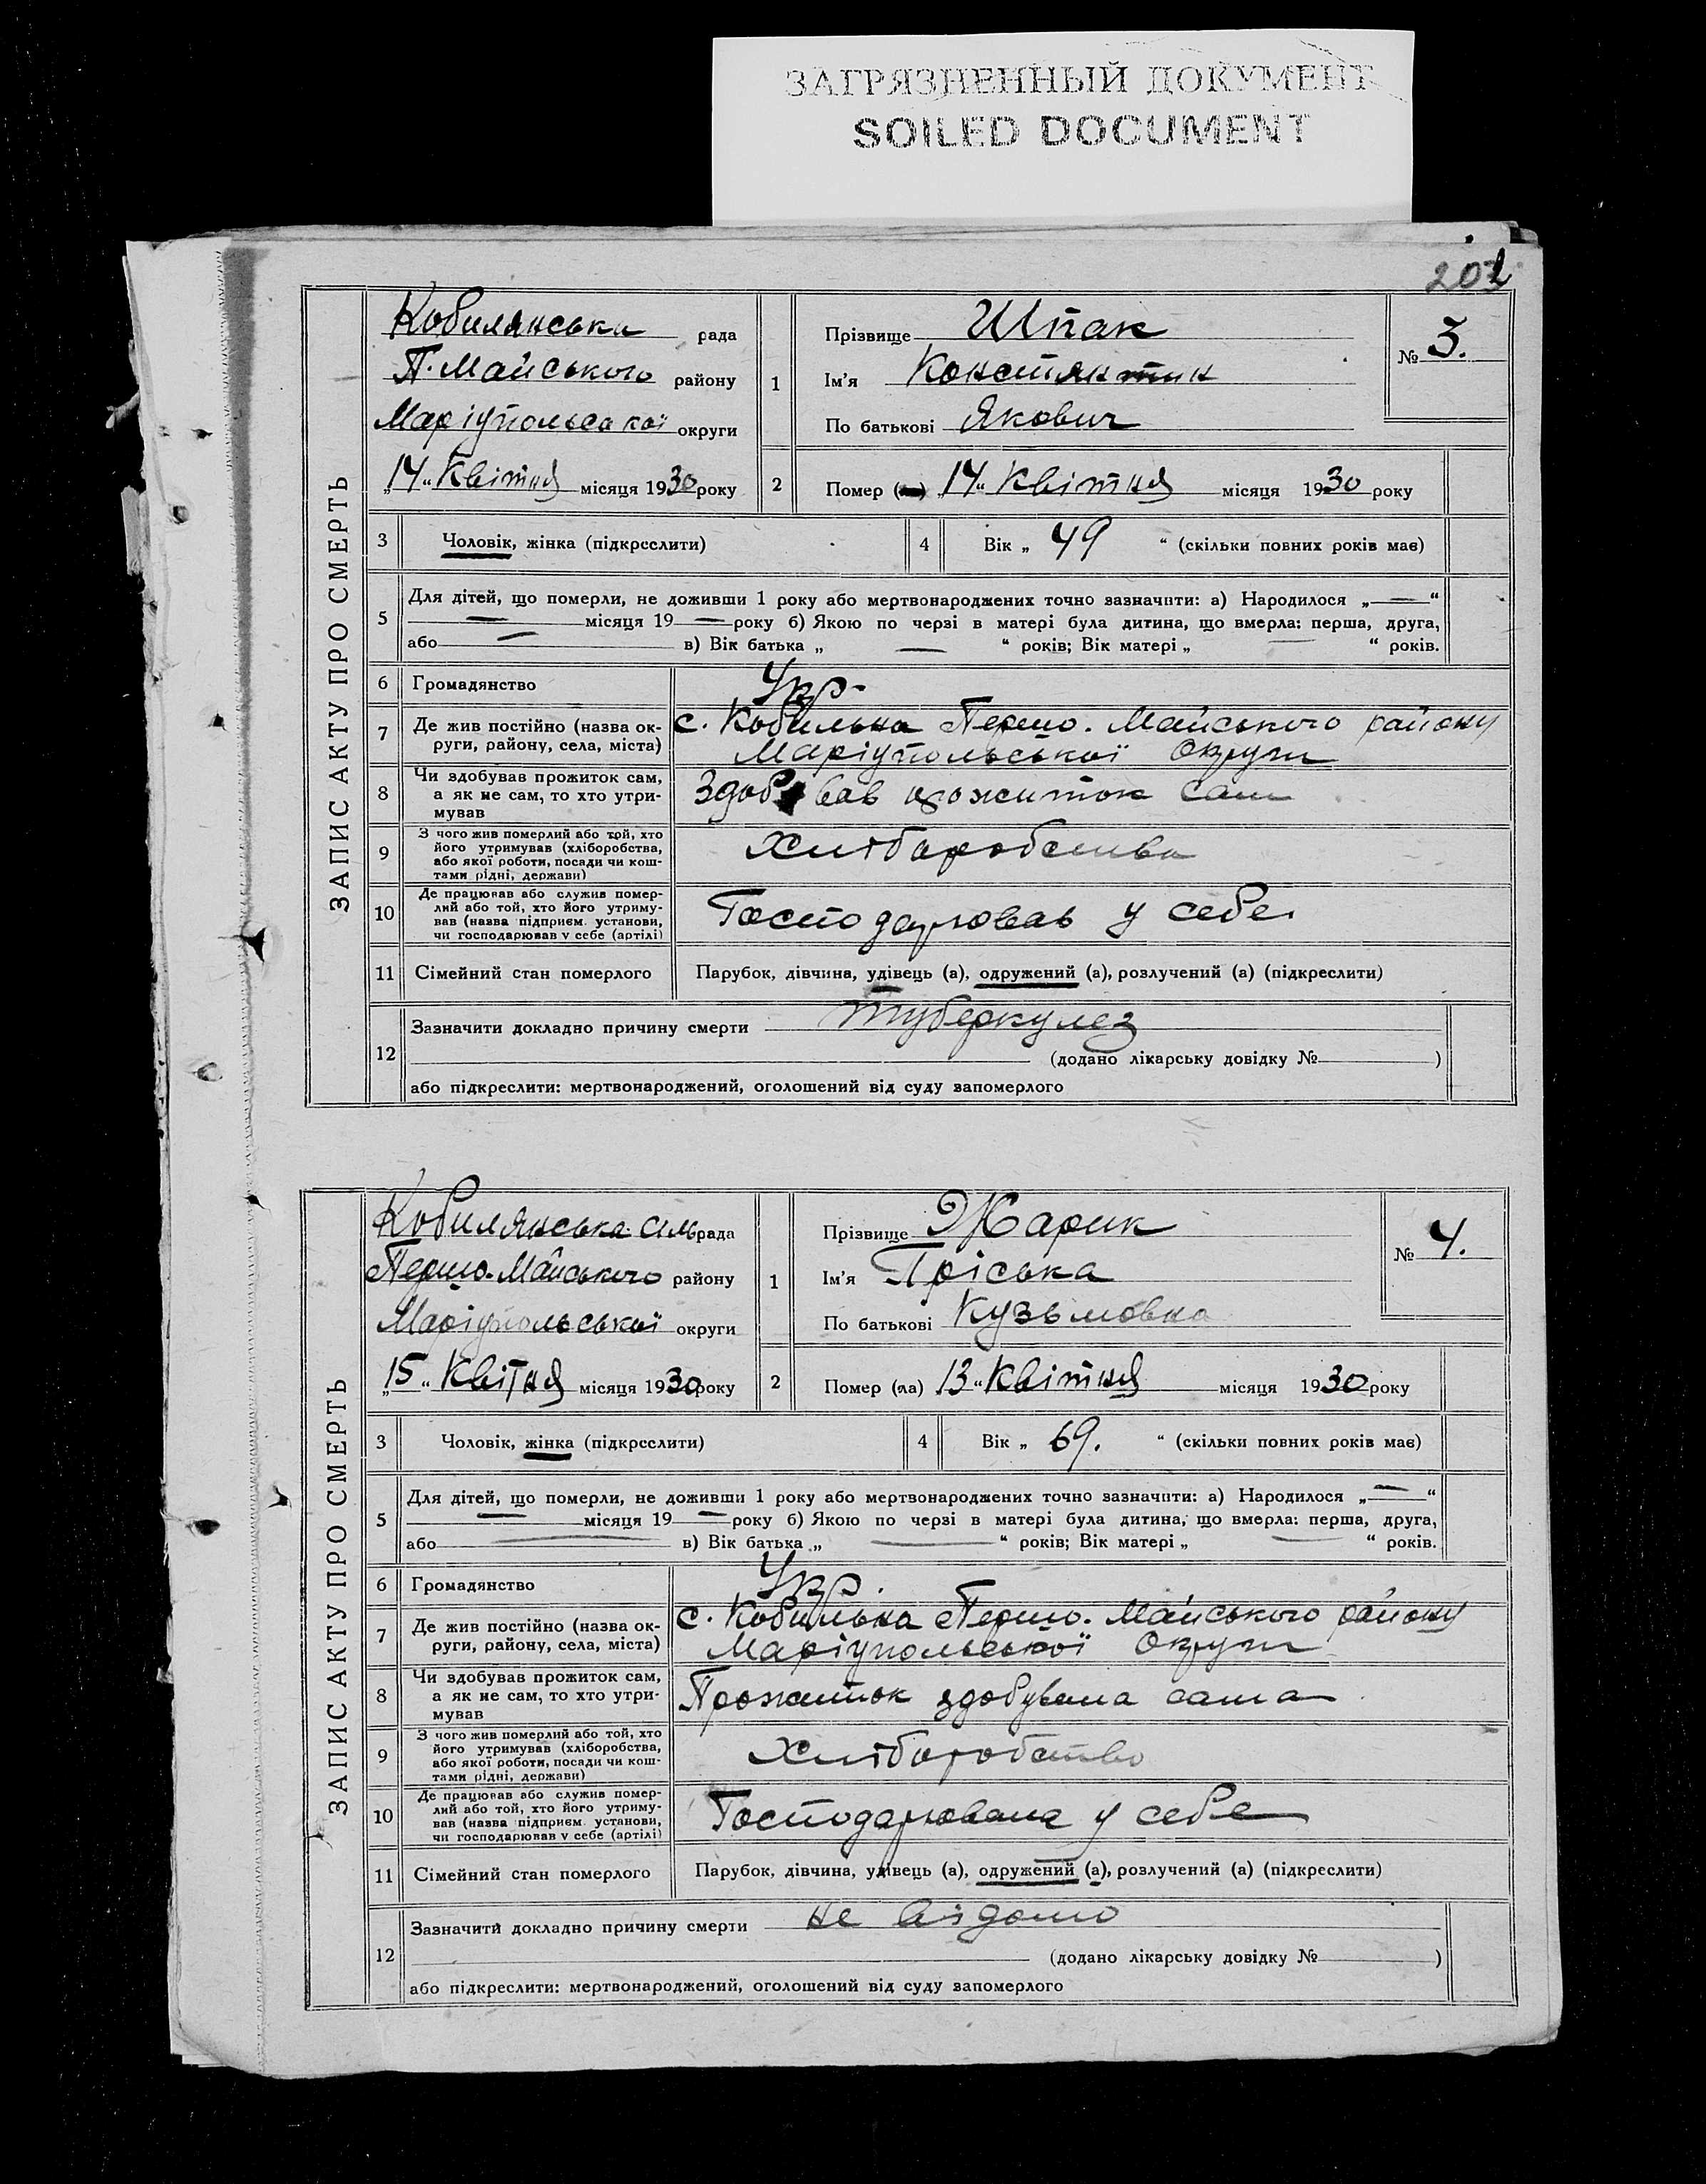 ЗАГРЯЗНЕННЫЙ ДОКУМЕНТ
SOILED DOCUMENT
ЗАПИС АКТУ ПРО СМЕРТЬ
Кобилянська рада
П. Майського району
Маріупольської округи
„14“ Квітня місяця 1930 року
1
Прізвище Шпак
Ім'я Констянтин
По батькові Якович
№ 3.
2
Помер „14“ Квітня місяця 1930 року
3 Чоловік, жінка (підкреслити)
4 Вік „ 49 “ (скільки повних років має)
5 Для дітей, що померли, не доживши 1 року або мертвонароджених точно зазначити: а) Народилося „—“
— місяця 19 — року б) Якою по черзі в матері була дитина, що вмерла: перша, друга,
або — в) Вік батька „ — “ років; Вік матері „ — “ років.
6 Громадянство Укр.
7 Де жив постійно (назва округи, району, села, міста) с. Кобильна Першо. Майського району
Маріупольської Округи
8 Чи здобував прожиток сам, а як не сам, то хто утримував Здобував прожиток сам
9 З чого жив померлий або той, хто його утримував (хліборобства, або якої роботи, посади чи коштами рідні, держави) Хліборобства
10 Де працював або служив померлий або той, хто його утримував (назва підприєм. установи, чи господарював у себе (артілі) Господарював у себе
11 Сімейний стан померлого Парубок, дівчина, удівець (а), одружений (а), розлучений (а) (підкреслити)
12 Зазначити докладно причину смерти туберкулез
(додано лікарську довідку № )
або підкреслити: мертвонароджений, оголошений від суду запомерлого
ЗАПИС АКТУ ПРО СМЕРТЬ
Кобилянська сільрада
Першо. Майського району
Маріупольської округи
„15“ Квітня місяця 1930 року
1
Прізвище Жарик
Ім'я Пріська
По батькові Кузьмовна
№ 4.
2
Помер (ла) 13 “ Квітня місяця 1930 року
3 Чоловік, жінка (підкреслити)
4 Вік „ 69. “ (скільки повних років має)
5 Для дітей, що померли, не доживши 1 року або мертвонароджених точно зазначити: а) Народилося „—“
— місяця 19 — року б) Якою по черзі в матері була дитина, що вмерла: перша, друга,
або — в) Вік батька „ — “ років; Вік матері „ — “ років.
6 Громадянство Укр.
7 Де жив постійно (назва округи, району, села, міста) с. Кобильна Першо. Майського району
Маріупольської Округи
8 Чи здобував прожиток сам, а як не сам, то хто утримував Прожиток здобувала сама
9 З чого жив померлий або той, хто його утримував (хліборобства, або якої роботи, посади чи коштами рідні, держави) Хліборобство
10 Де працював або служив померлий або той, хто його утримував (назва підприєм. установи, чи господарював у себе (артілі) Господарювала у себе
11 Сімейний стан померлого Парубок, дівчина, удівець (а), одружений (а), розлучений (а) (підкреслити)
12 Зазначити докладно причину смерти не відомо
(додано лікарську довідку № )
або підкреслити: мертвонароджений, оголошений від суду запомерлого